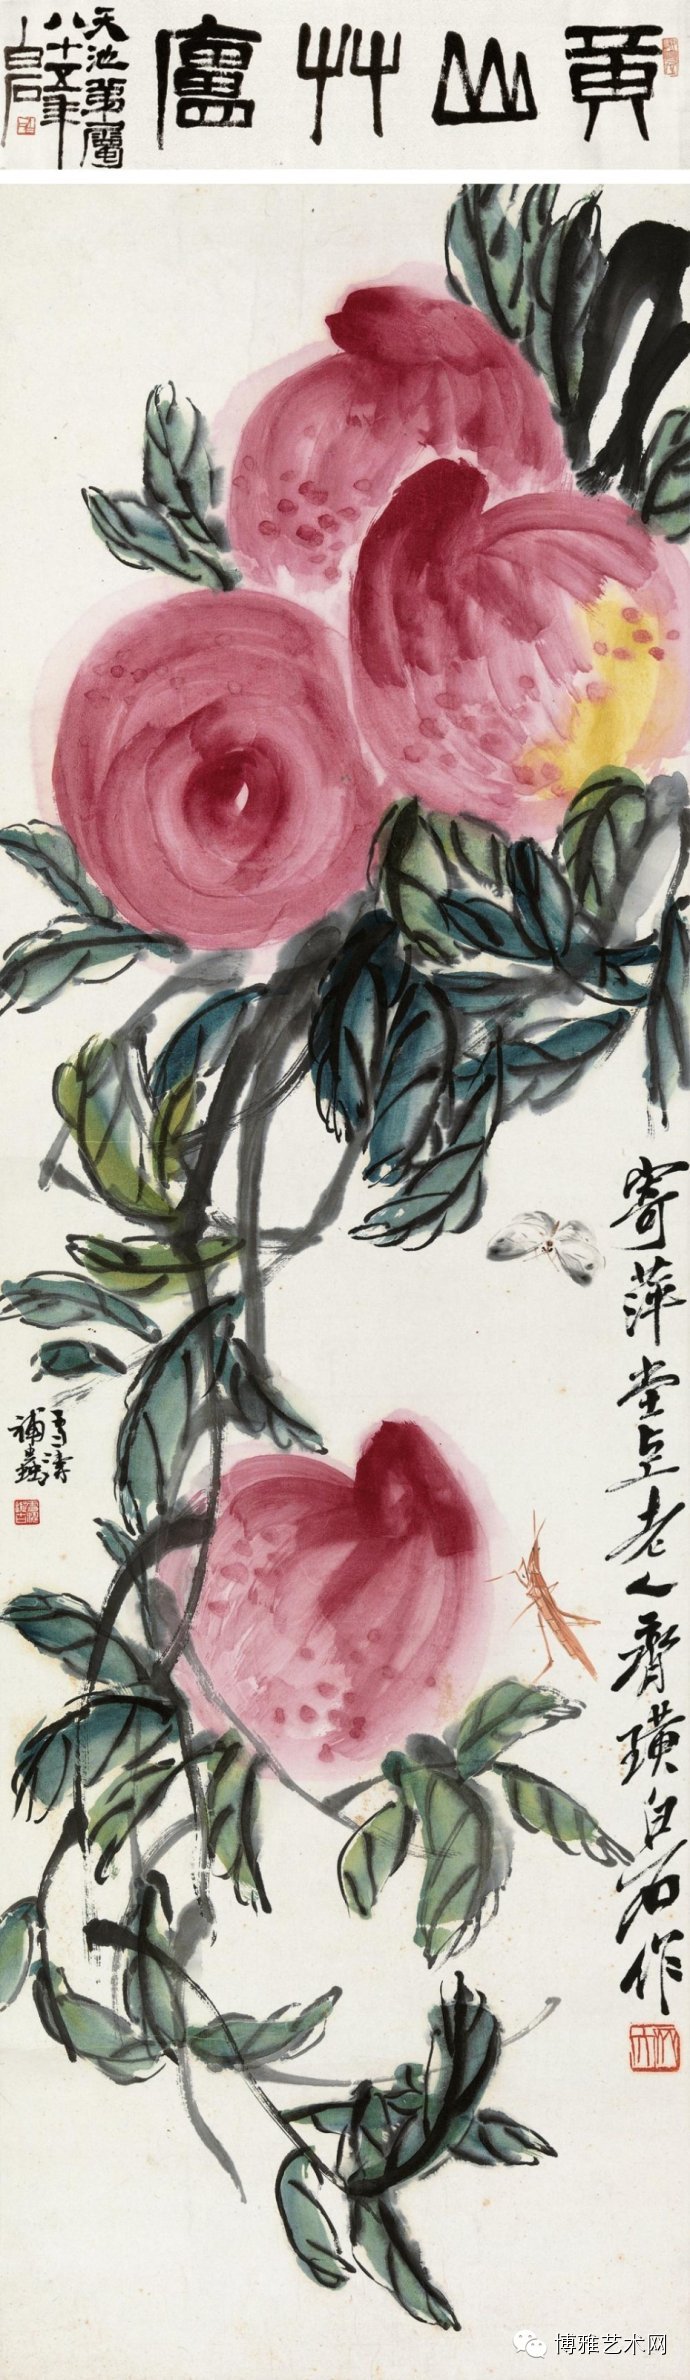 黃山艸廬
天池弟屬
八十五年
白石
寄萍堂上老人齊璜白石作
雪濤
補蟲
博雅艺术网